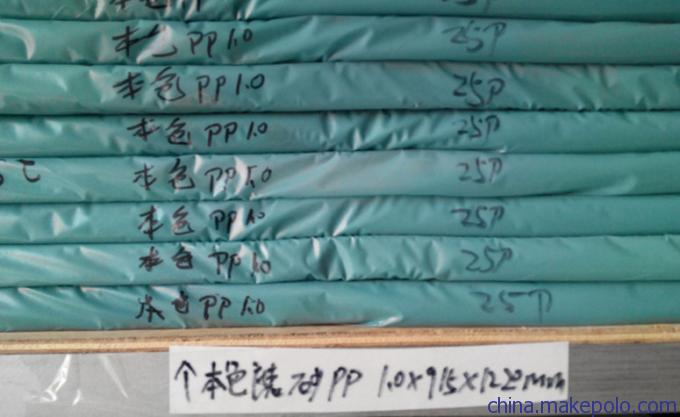 本色PP1.0 25P
本色PP1.0 25P
本色PP1.0 25P
本色PP1.0 25P
本色PP1.0 25P
本色PP1.0 25P
本色PP1.0 25P
个本色 PP 1.0×915×1220mm
china.makepolo.com